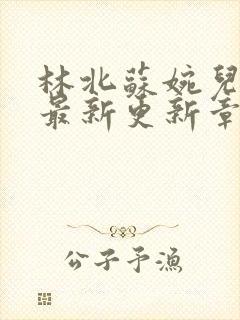 林北蘇婉兒
最新更新章
公子予漁